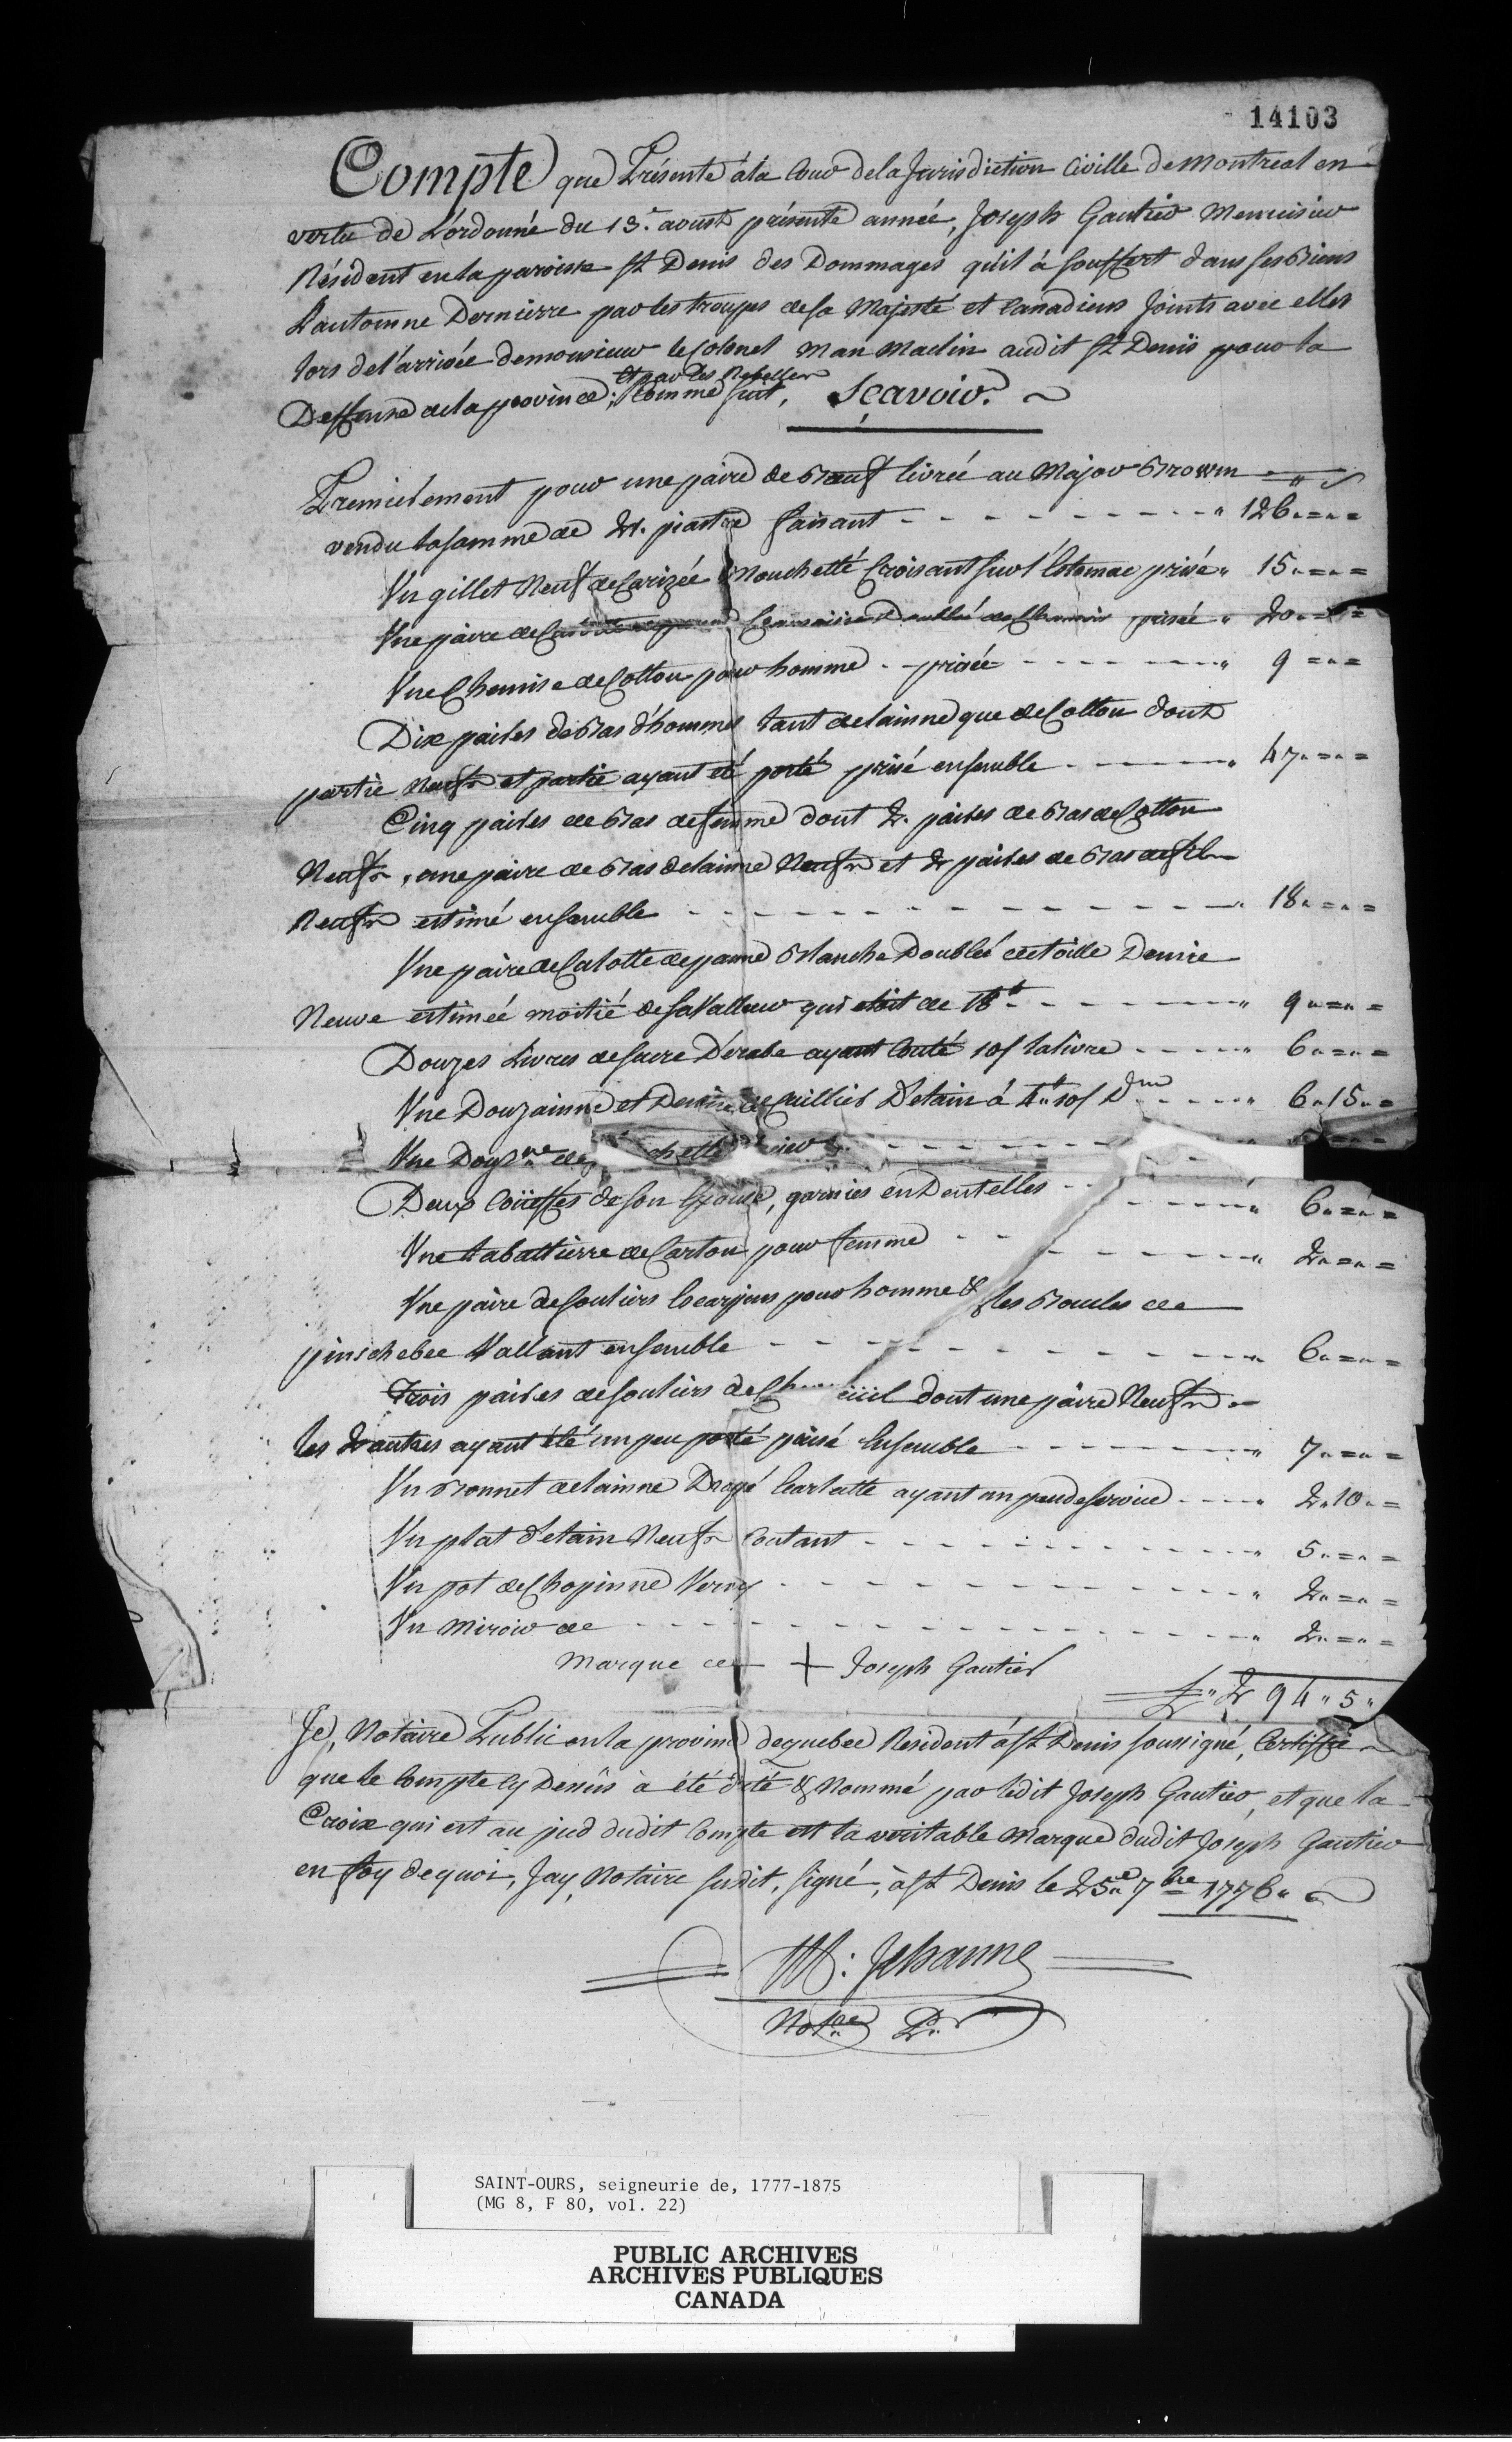 14103
Compte que Présente à la Cour de la Jurisdiction Civille de Montreal en
vertu de L'ordonné du 13.e aoust présente année, Joseph Gautier Menuisier
Résident en la paroisse St Denis des Dommages qu'il à souffert dans ses Biens
L'automne Dernierre par les troupes de Sa Majesté et Canadiens Joints avec elles
lors de l'arrivée de monsieur le Colonel Man Maclin audit St Denis pour la
et par les Rebelles
Deffense de la province; Comme suit, Sçavoir.
Premierement pour une paire de Bœuf livrée au Major Brown
vendu la somme de 21. piastre faisant 126
Un gillet Neuf de Carizée Mouchetté Croisant sur l'Estomac prisé 15
Une paire de Doublé de Chamois prisée 20
Une Chemise de Cotton pour homme prisée 9
Dix paires de Bas d'hommes tant de lainne que de Cotton dont
partie Neufs et partie ayant été porté prisé ensemble 47
Cinq paires de Bas de femme dont 2. paires de Bas de Cotton
Neufs, une paire de Bas de lainne Neufs et 2 paires de Bas de fil
Neufs estimé ensemble 18
Une paire de Calotte de panne Blanche Doublée de toille Demie
Neuve estimée moitié de sa Valleur qui étoit de 18# 9
Douzes Livres de sucre D'erable ayant Couté 10s la livre 6
Une Douzainne et Demie de Cuillier D'etain à 4# 10s Dne 6 15
Une Douzne de chette
Deux Coüeffes de son Epouse, garnies en Dentelles 6
Une tabattierre de Carton pour femme 2
Une paire de souliers Escarpins pour homme & les Boucles de
pinschebec Vallant ensemble 6
Trois paires de souliers de Ch euil dont une paire Neufs
les 2 autres ayant été un peu porté prisé Ensemble 7
Un Bonnet de lainne Drapé Ecarlatte ayant un peu de service 2 10
Un plat d'etain Neufs Coutant 5
Un pot de Chopinne Verny 2
Un Miroir de 2
Marque de + Joseph Gautier
£ 294 5
Je, Notaire Public en la province de quebec Resident à St Denis soussigné, Certiffie
que le Compte cy Dessus à été dité & Nommé par ledit Joseph Gautier, et que la
Croix qui est au pied dudit Compte est la veritable Marque dudit Joseph Gautier
en foy de quoi, Jay, Notaire susdit, signé, à St Denis le 25e 7bre 1776
M: Jehanne
Notre P.
SAINT-OURS, seigneurie de, 1777-1875
(MG 8, F 80, vol. 22)
PUBLIC ARCHIVES
ARCHIVES PUBLIQUES
CANADA